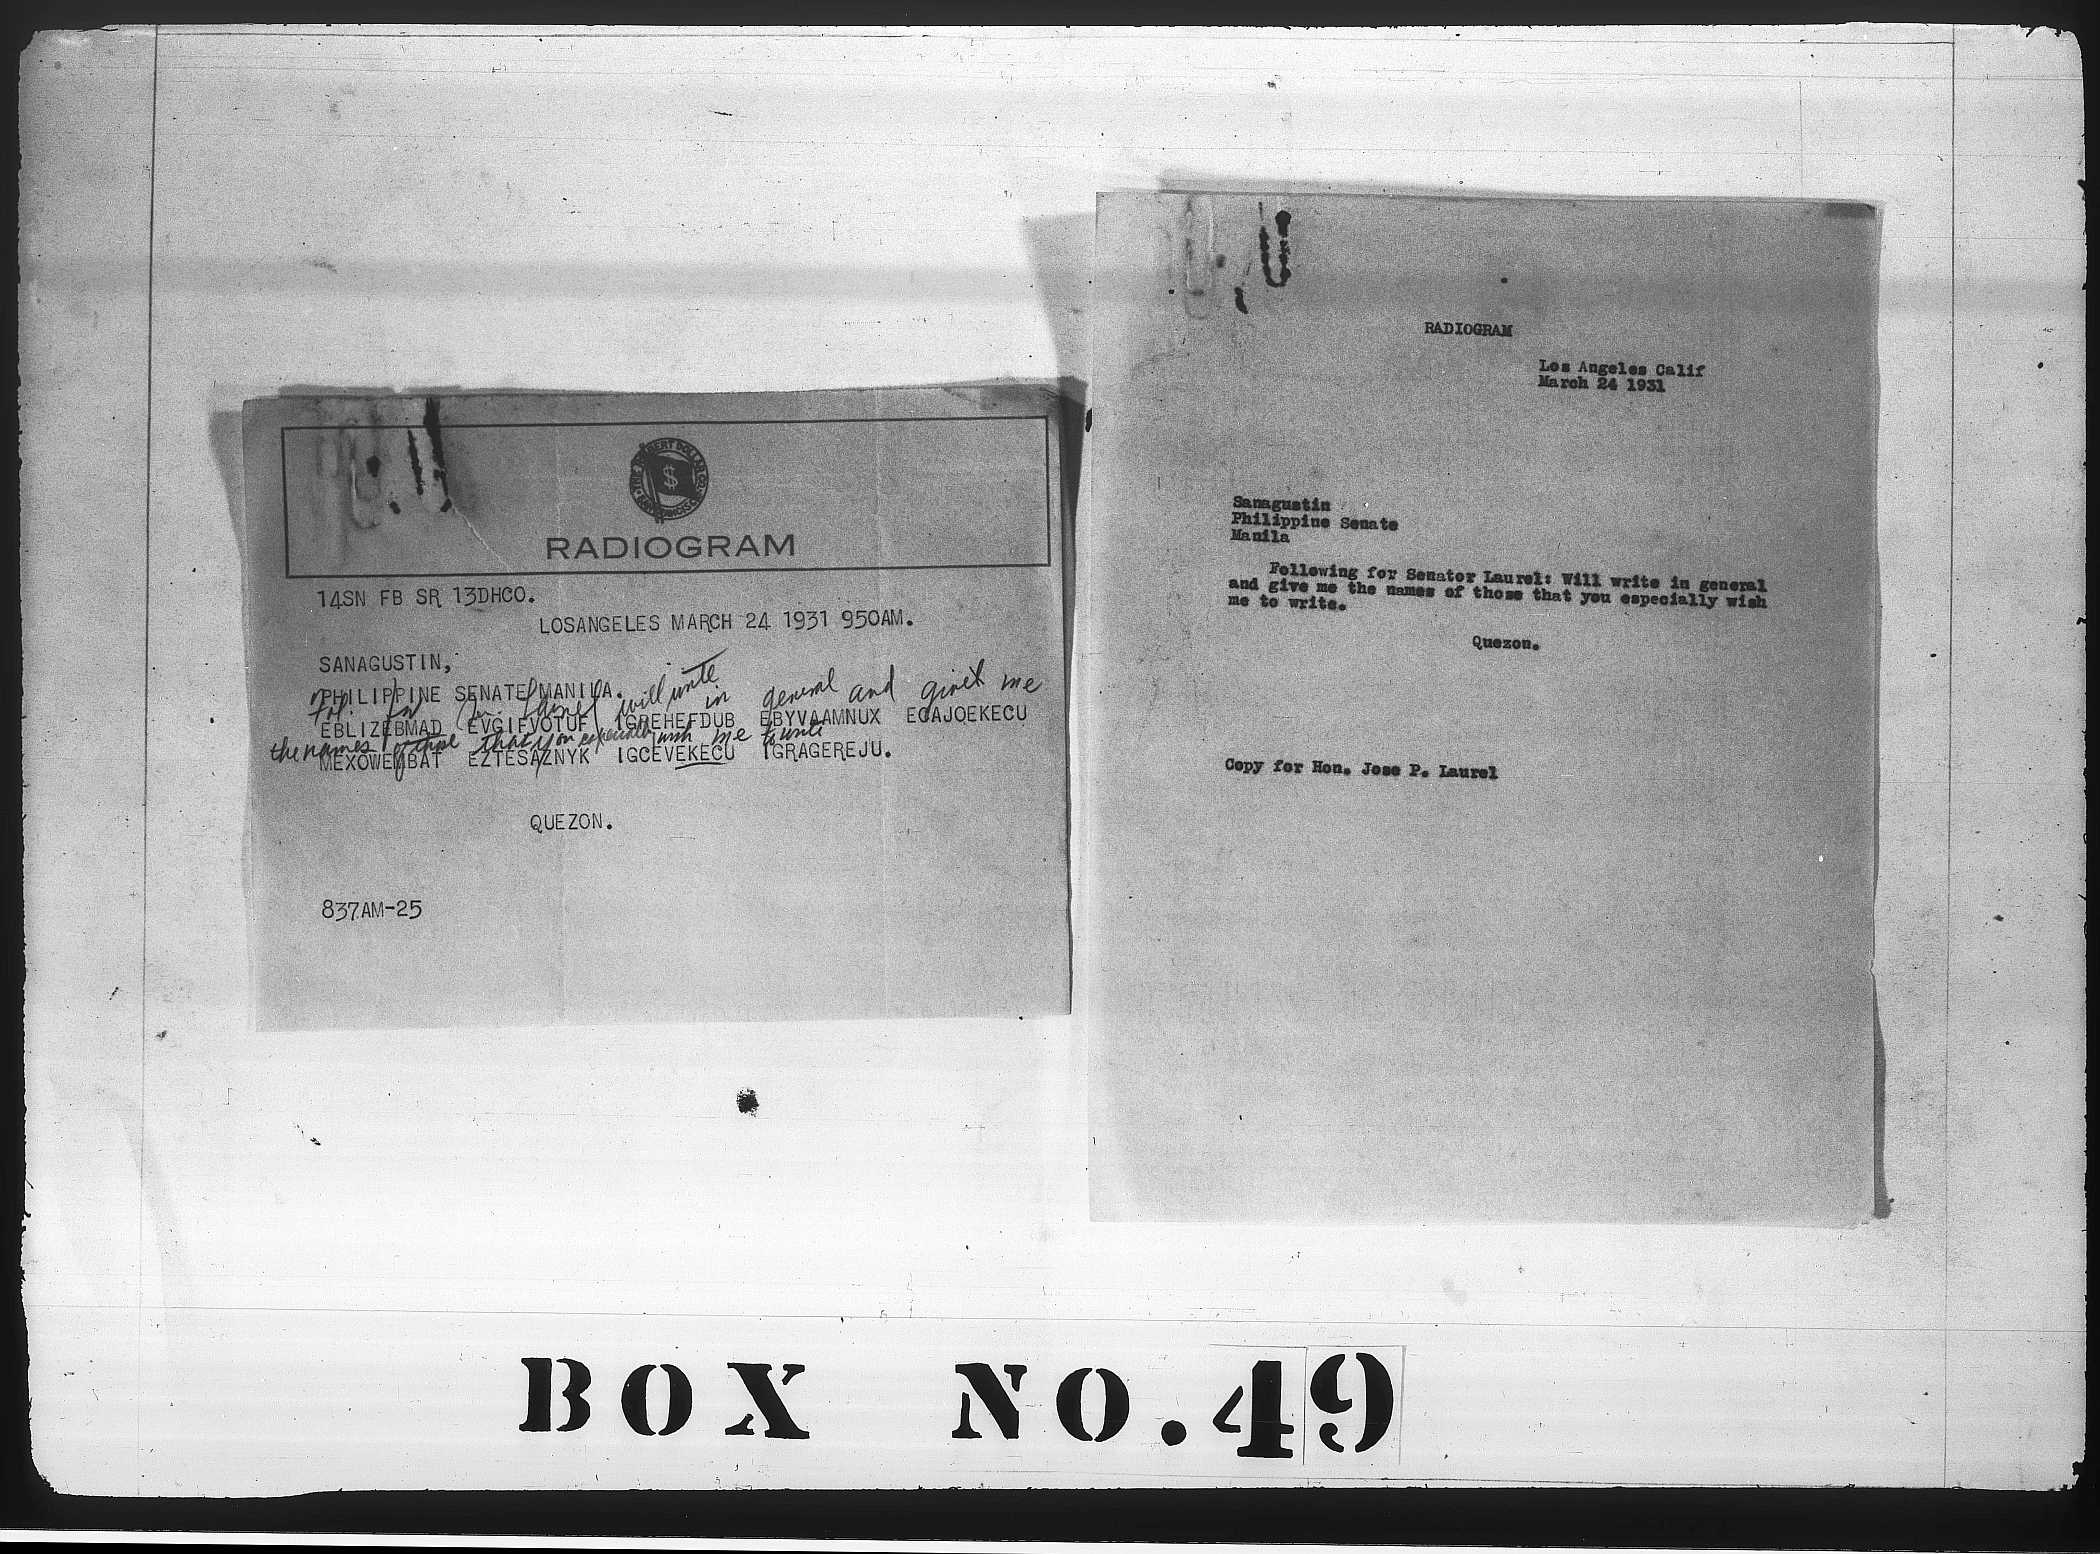 ROBERT DOLLAR CO.
SAN FRANCISCO
$
RADIOGRAM
14SN FB SR 13DHCO.
LOSANGELES MARCH 24 1931 950AM.
SANAGUSTIN,
PHILIPPINE SENATE MANILA.
Fol for Sen. Laurel will write in general and give me
EBLIZEBMAD EVGIFVOTUF IGREHEFDUB EBYVAAMNUX ECAJOEKECU
the names of those that you especially wish me to write
MEXOWEMBAT EZTESAZNYK IGCEVEKECU IGRAGEREJU.
QUEZON.
837AM-25
RADIOGRAM
Los Angeles Calif
March 24 1931
Sanagustin
Philippine Senate
Manila
Following for Senator Laurel: Will write in general
and give me the names of those that you especially wish
me to write.
Quezon.
Copy for Hon. Jose P. Laurel
BOX NO.49